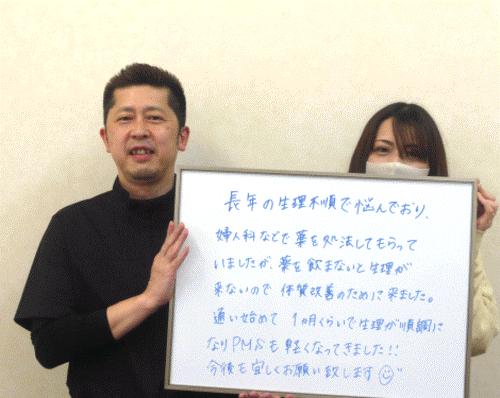 長年の生理不順で悩んでおり、
婦人科などで薬を処法してもらって
いましたが、薬を飲まないと生理が
来ないので 体質改善のために来ました。
通い始めて 1ヵ月くらいで生理が順調に
なりPMSも軽くなってきました!!
今後も宜しくお願い致します